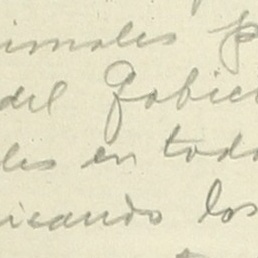 imales p
del Gobie
les en todo
icando los